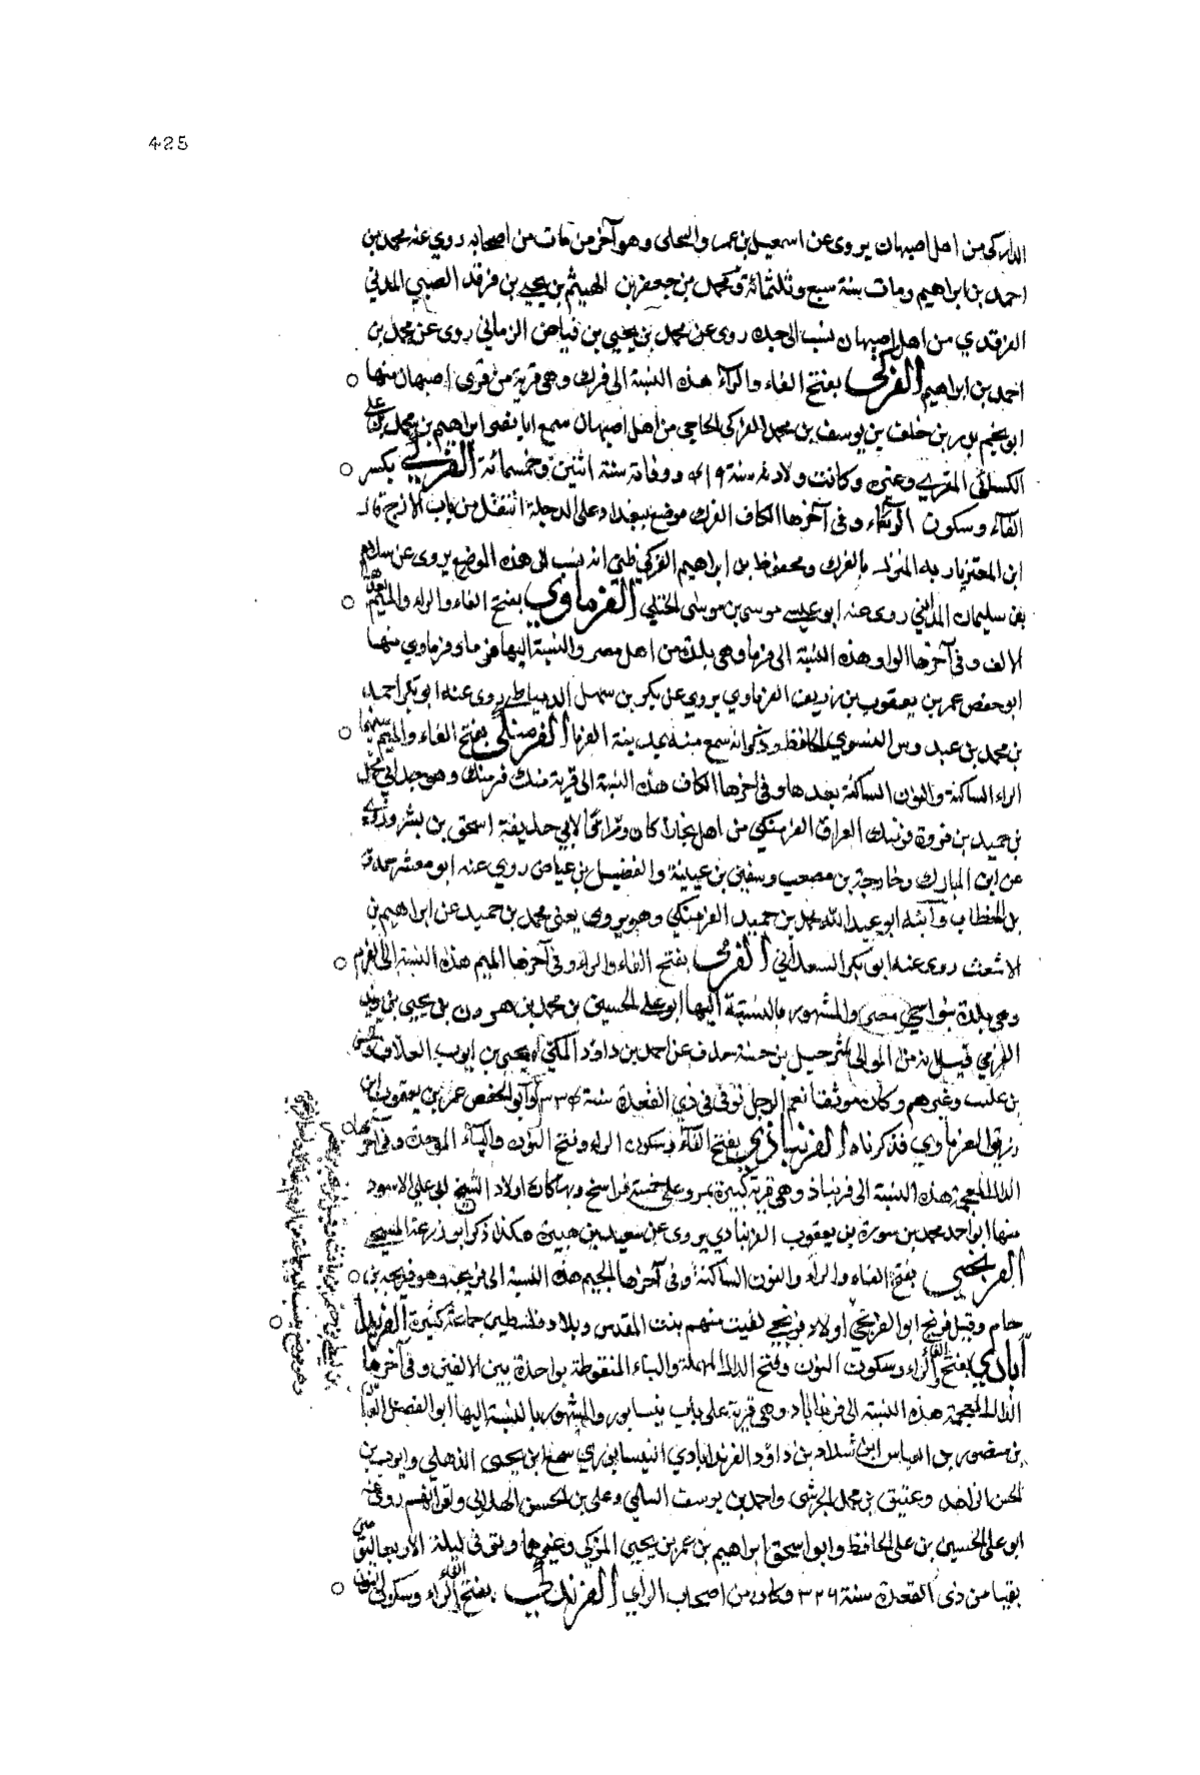 425
الداركي من اهل اصبهان يروي عن اسمعيل بن عمرو البجلي وهو آخر من مات من اصحابه روي عنه محمد بن
احمد بن ابراهيم ومات سنة سبع وثلثمائة ومحمد بن جعفر بن الهيثم بن يحيى بن فرقد الضبي المدني
الفرقدي من اهل اصبهان نسب الى جده روى عن محمد بن يحيى بن فياض الزماني روى عن محمد بن
احمد بن ابراهيم الفركي بفتح الفاء والراء هذه النسبة الى فرك وهى قرية من قرى اصبهان منها
ابو نجم بدر بن خلف بن يوسف بن محمد الفركي الحاجي من اهل اصبهان سمع ابا نصر ابراهيم بن محمد بن علي
الكسائي المقري وغيره وكانت ولادته سنة ووفاته سنة اثنتين وخمسمائة الفركي بكسر
الفاء وسكون الراء وفى آخرها الكاف الفرك موضع ببغداد على الدجلة انتقل من باب الازج قال
ابن المعتز بالفرك ومحفوظ بن ابراهيم الفركي ظني انه نسب الى هذه الموضع يروى عن سلام
بن سليمان المدائني روى عنه ابو عيسى موسى بن موسى الختلي الفرماوي بفتح الفاء والراء والميم بعدها
الالف وفى آخرها الواو هذه النسبة الى فرما وهى بلدة من اهل مصر والنسبة اليها فرما وفرماوي منها
ابو حفص عمر بن يعقوب بن زريق الفرماوي يروي عن بكر بن سهل الدمياطي روى عنه ابو بكر احمد
بن محمد بن عبدوس النسوي الحافظ وذكر انه سمع منه بمدينة الفرما الفرمنكي بفتح الفاء والميم بينهما
الراء الساكنة والنون الساكنة بعدها وفى اخرها الكاف هذه النسبة الى قرية منك فرمنك وهو جد ابي محمد
بن حميد بن فروة العراق الفرمنكي من اهل بخارا كان لابي حذيفة اسحق بن بشر وروى
عن ابن المبارك وخارجة بن مصعب وسفين بن عيينة والفضيل بن عياض روي عنه ابو معشر حمدويه
بن الخطاب وابنه ابو عبد الله محمد بن حميد الفرمنكي وهو يروى يعنى محمد بن حميد عن ابراهيم بن
الاشعث روى عنه ابو بكر السعداني الفرمي بفتح الفاء والراء وفى آخرها الميم هذه النسبة الى الفرم
وهى بلدة بنواحي مصر والمشهور بالنسبة اليها ابو علي الحسين بن محمد بن هرون بن يحيى بن يزيد
الفرمي قيل انه من الموالى شرحبيل بن حسنة حدث عن احمد بن داود المكي ويحيى بن ايوب العلاف
بن غليب وغيرهم وكان موثقا نعم الرجل توفى فى ذي القعدة سنة ٣٣٤ وابو الحفص عمر بن يعقوب ابن
زريق الفرماوي قد ذكرناه الفرنباذي بفتح الفاء وسكون الراء وفتح النون والباء الموحدة وفى آخرها
الذال المعجمة هذه النسبة الى فرنباذ وهى قرية كبيرة بمرو على خمسة فراسخ وبها كان اولاد الشيخ ابي علي الاسود
منها ابو احمد محمد بن سورة بن يعقوب الفرنباذي يروى عن سعيد بن هبيرة هكذا ذكر ابو زرعة السنجي
الفرنجي بفتح الفاء والراء والنون الساكنة وفى آخرها الجيم هذه النسبة الى فرنجه وهو فرنجه بن
حام وقيل فرنج ابو الفرنج اولاد فرنجي لقيت منهم ببيت المقدس وبلاد فلسطين جماعة كثيرة الفرندا
آباذي بفتح الفاء والراء وسكون النون وفتح الدال المهملة والباء المنقوطة بواحدة بين الالفين وفى آخرها
الذال المعجمة هذه النسبة الى فرنداباد وهى قرية على باب نيسابور والمشهور بالنسبة اليها ابو الفضل العباس
بن منصور بن العباس ابن شداد بن داود الفرنداباذي النيسابوري سمع ابن يحيى الذهلي وايوب بن
الحسن الزاهد وعتيق بن محمد الجرشي واحمد بن يوسف السلمي وعلي بن الحسن الهلالي روى عنه
ابو علي الحسين بن علي الحافظ وابو اسحق ابراهيم بن محمد بن يحيى المزكي وغيرهما وتوفى ليلة الاربعا لثمان
بقيا من ذى القعدة سنة ٣٢٦ وكان من اصحاب الراي الفرنكي بفتح الفاء والراء وسكون النون